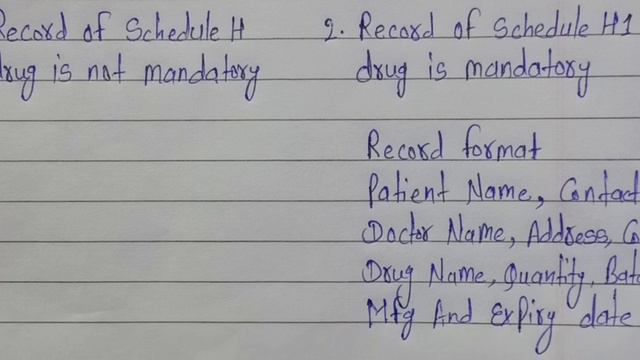 Record of Schedule H
drug is not mandatory
2. Record of Schedule H1
drug is mandatory
Record format
Patient Name, Contact
Doctor Name, Address,
Drug Name, Quantity,
Mfg And Expiry date